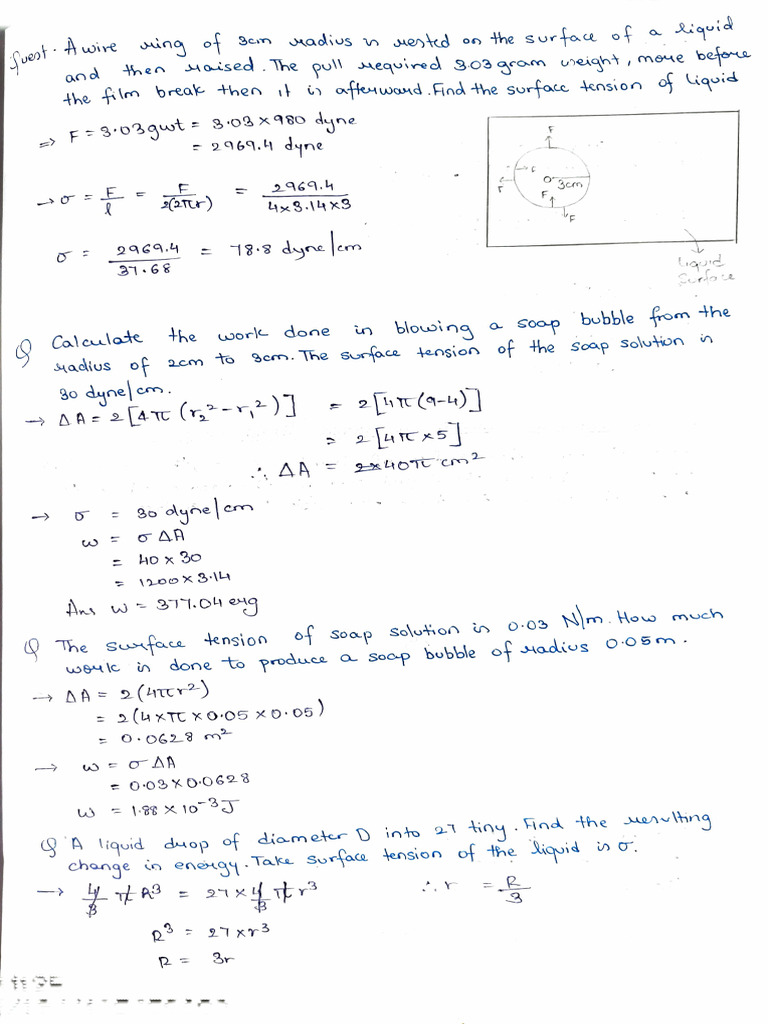 Quest. A wire ring of 3cm radius is rested on the surface of a liquid
and then raised. The pull required 3.03 gram weight, more before
the film break then it is afterward. Find the surface tension of liquid
⇒ F = 3.03gwt = 3.03 × 980 dyne
= 2969.4 dyne
F
F
F
O 3cm
F
F
→ σ = F/l = F/2(2πr) = 2969.4/4×3.14×3
σ = 2969.4/37.68 = 78.8 dyne/cm
liquid
surface
Q Calculate the work done in blowing a soap bubble from the
radius of 2cm to 3cm. The surface tension of the soap solution is
30 dyne/cm.
→ ΔA = 2[4π (r₂² - r₁²)] = 2[4π(9-4)]
= 2[4π×5]
∴ ΔA = 40π cm²
→ σ = 30 dyne/cm
w = σ ΔA
= 40 × 30
= 1200 × 3.14
Ans w = 377.04 erg
Q The surface tension of soap solution is 0.03 N/m. How much
work is done to produce a soap bubble of radius 0.05m.
→ ΔA = 2(4πr²)
= 2(4×π×0.05×0.05)
= 0.0628 m²
→ w = σ ΔA
= 0.03×0.0628
w = 1.88 × 10⁻³ J
Q A liquid drop of diameter D into 27 tiny. Find the resulting
change in energy. Take surface tension of the liquid is σ.
→ 4/3 π R³ = 27 × 4/3 π r³ ∴ r = R/3
R³ = 27×r³
R = 3r